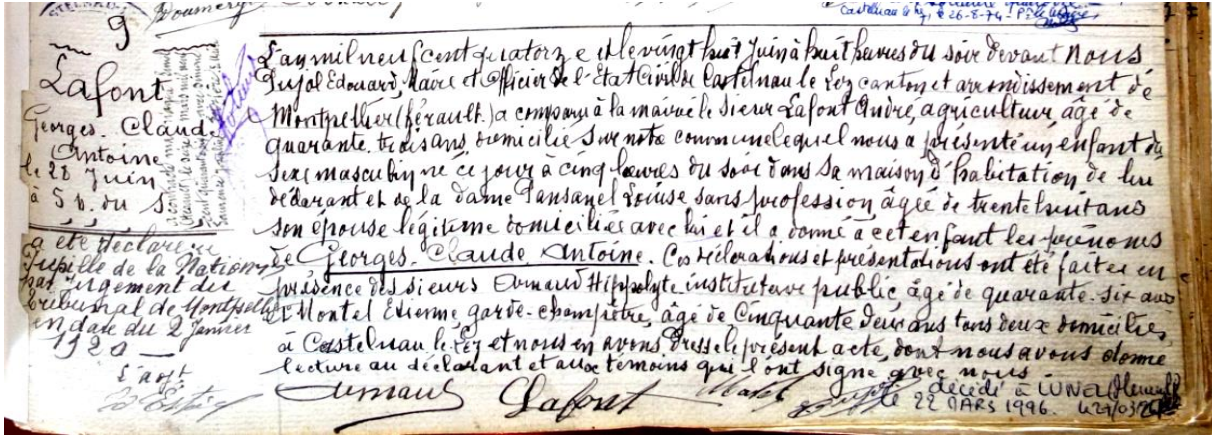 Doumerg
Castelnau le Lez, le 26-8-74
9
Lafont
Georges. Claude
Antoine
le 28 Juin
à 5 h. du S.
a été déclaré
Pupille de la Nation
par jugement du
tribunal de Montpellier
en date du 2 Janvier
1920
L'an mil neuf cent quatorze et le vingt huit Juin à huit heures du soir devant Nous
Pujol Edouard, Maire et Officier de l'État Civil de Castelnau le Lez canton et arrondissement de
Montpellier (Hérault) a comparu à la mairie le Sieur Lafont André, agriculteur, âgé de
quarante. trois ans, domicilié sur notre commune lequel nous a présenté un enfant du
sexe masculin né ce jour à cinq heures du soir dans sa maison d'habitation de lui
déclarant et de la dame Pansanel Louise sans profession, âgée de trente huit ans
son épouse légitime domiciliée avec lui et il a donné à cet enfant les prénoms
de Georges. Claude Antoine. Ces déclarations et présentations ont été faites en
présence des sieurs Arnaud Hippolyte instituteur public, âgé de quarante-six ans
et Montel Etienne, garde-champêtre, âgé de Cinquante deux ans tous deux domiciliés
à Castelnau le Lez et nous en avons dressé le présent acte, dont nous avons donné
lecture au déclarant et aux témoins qui l'ont signé avec nous
Arnaud Lafont Pujol
décédé à LUNEL (Hérault)
le 22 MARS 1996.